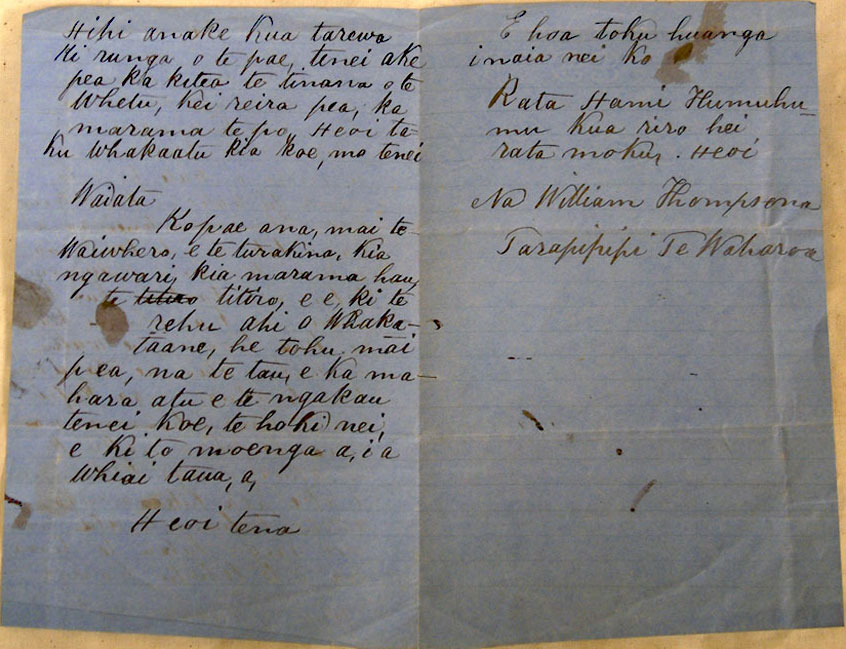 Hihi anake kua tarewa
ki runga o te pae, tenei ake
pea ka kitea te tinana o te
Whetu, kei reira pea, ka
marama te po, Heoi ta-
ku Whakaatu kia koe, mo tenei
Waiata
Kopae ana, mai te
Waiwhero, e te turakina, kia
ngawari, kia marama hau,
te titiro titiro, e e, ki te
rehu ahi o Whaka-
taane, he tohu mai
pea, na te tau, e ka ma-
hara atu e te ngakau
tenei koe, te hoki nei,
e ki to moenga a, i a
Whiai taua, a,
Heoi tena
E hoa toku huanga
inaia nei ko
Rata Hami Humuhu-
mu kua riro hei
rata moku, . Heoi
Na William Thompsona
Tarapipipi Te Waharoa